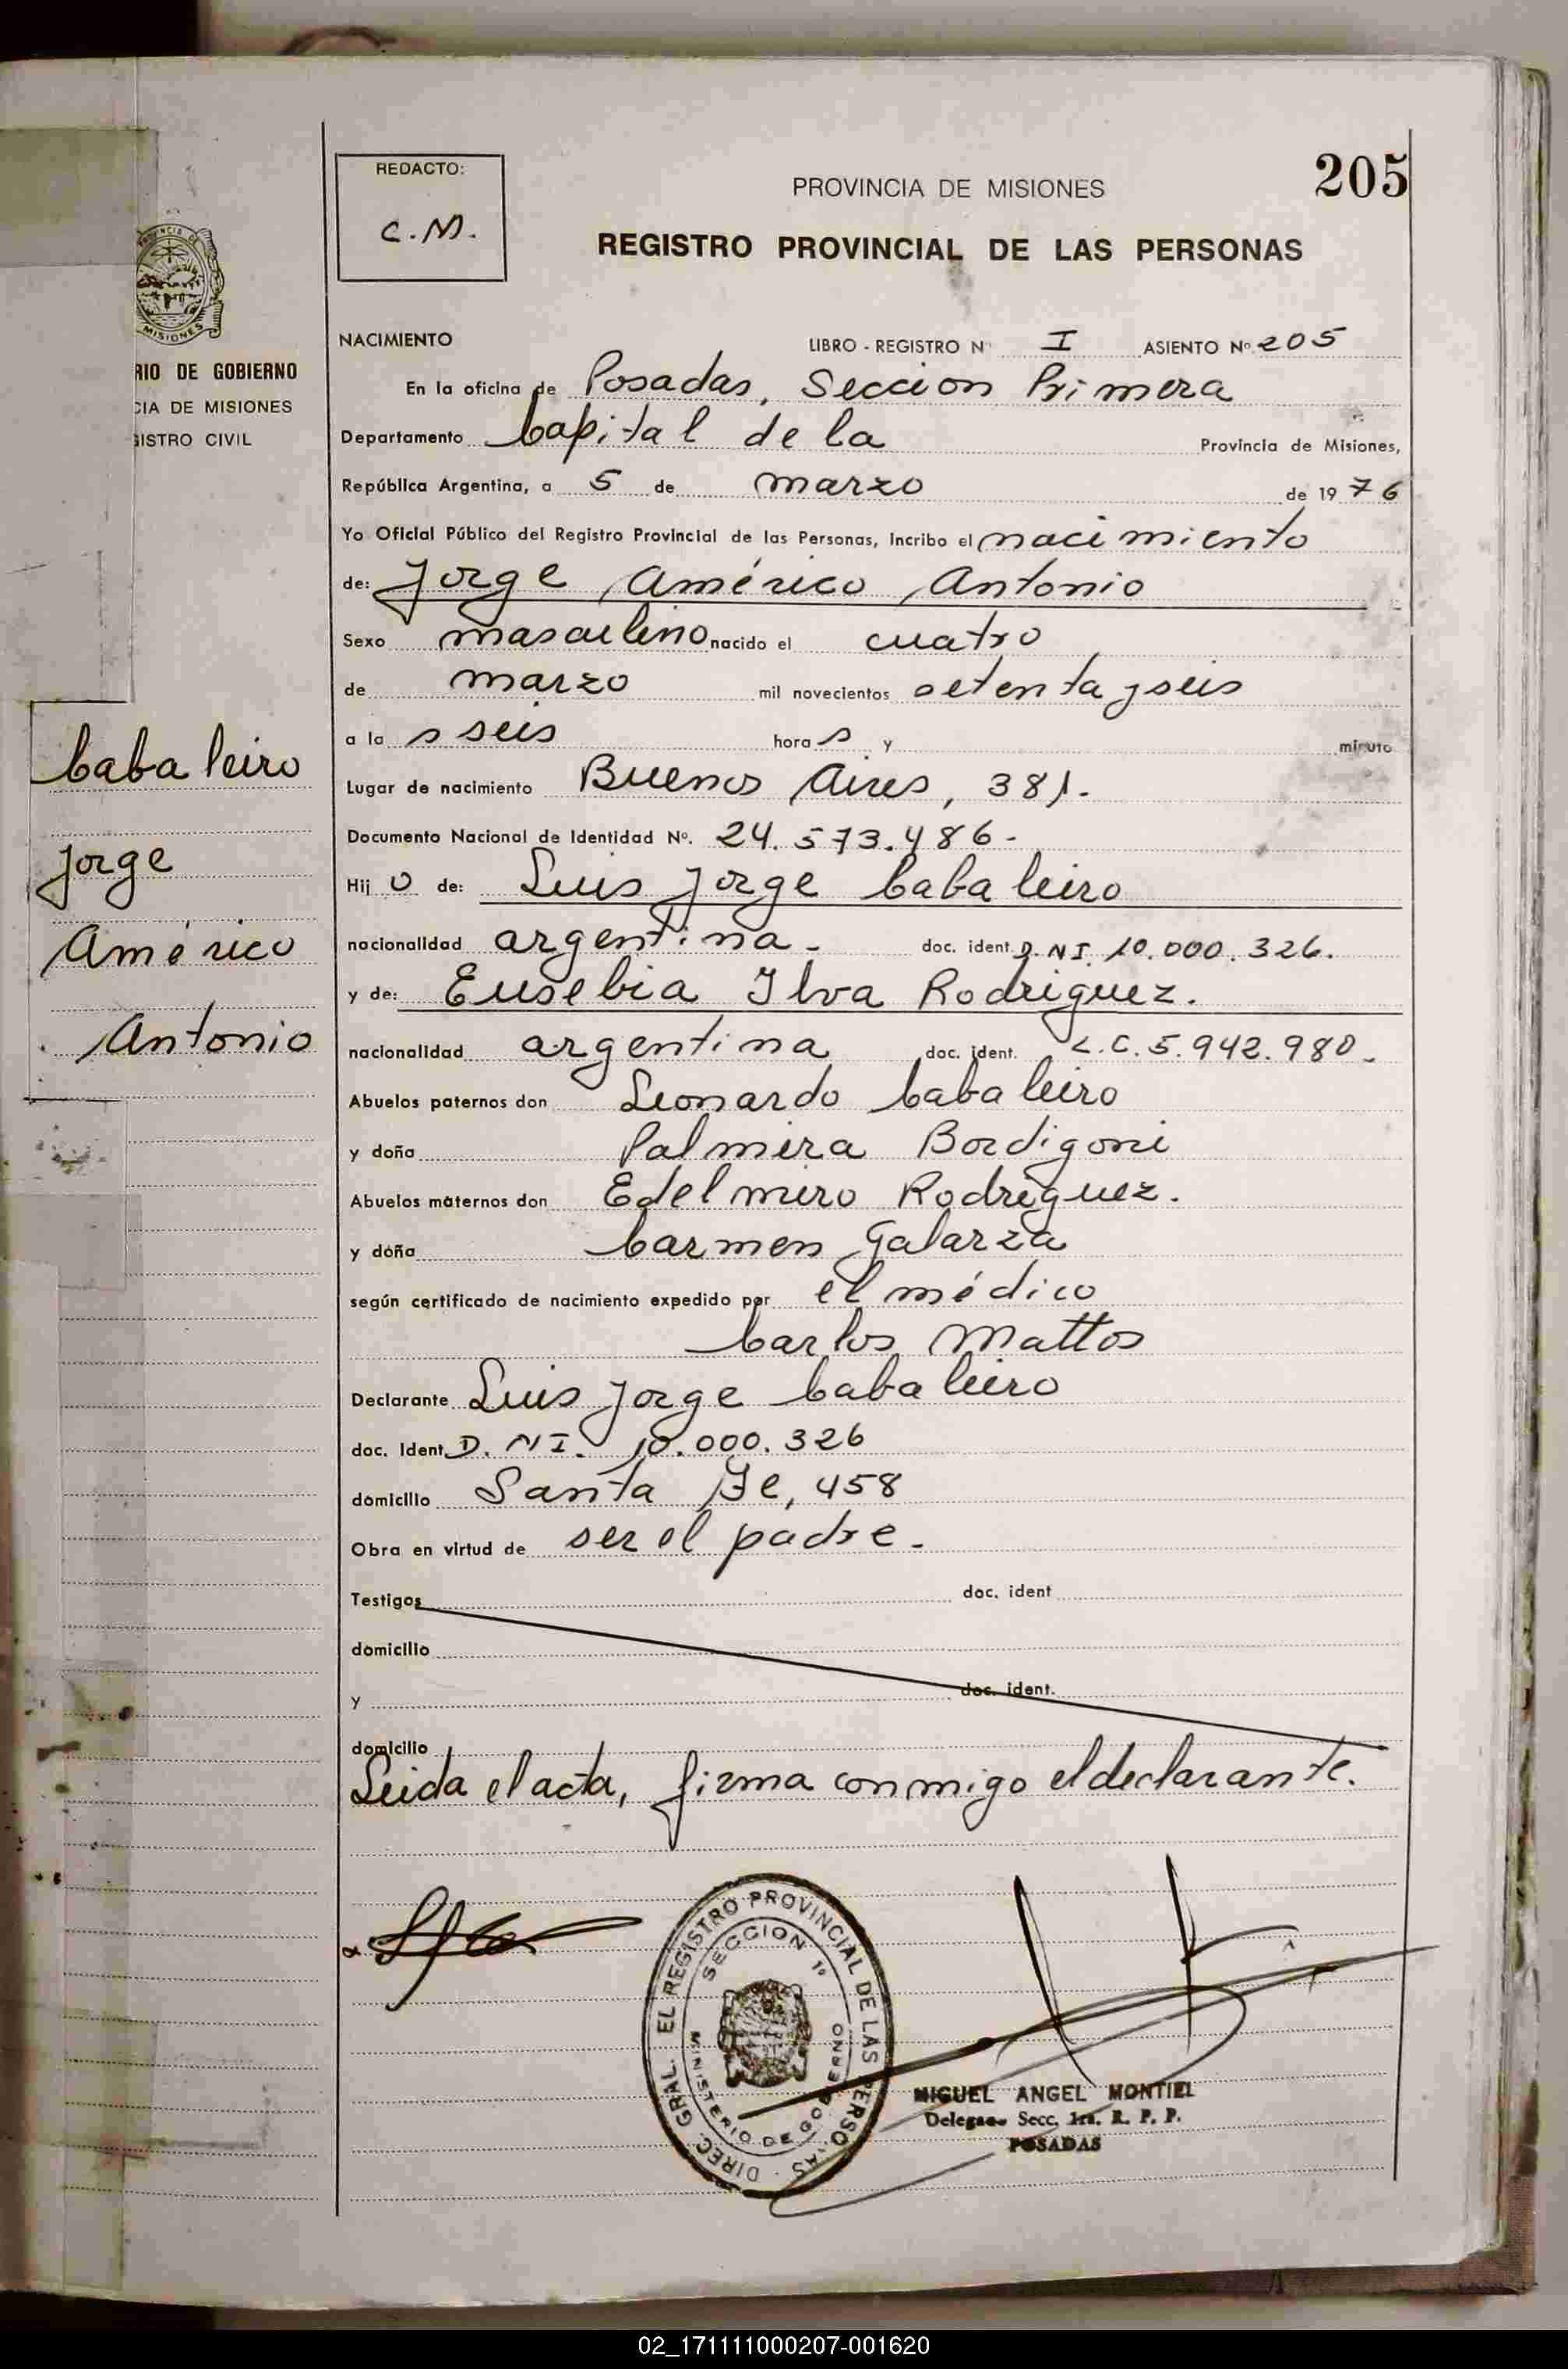 205
REDACTO:
C.M.
PROVINCIA DE MISIONES
REGISTRO PROVINCIAL DE LAS PERSONAS
PROVINCIA DE
MISIONES
RIO DE GOBIERNO
CIA DE MISIONES
GISTRO CIVIL
Cabaleiro
Jorge
Américo
Antonio
NACIMIENTO LIBRO - REGISTRO Nº I ASIENTO Nº 205
En la oficina de Posadas, Seccion Primera
Departamento Capital de la Provincia de Misiones,
República Argentina, a 5 de marzo de 1976
Yo Oficial Público del Registro Provincial de las Personas, incribo el nacimiento
de: Jorge Américo Antonio
Sexo masculino nacido el cuatro
de marzo mil novecientos setenta y seis
a la s seis hora s y minuto
Lugar de nacimiento Buenos Aires, 381.-
Documento Nacional de Identidad Nº. 24.573.486-
Hij o de: Luis Jorge Cabaleiro
nacionalidad argentina- doc. ident. D.N.I. 10.000.326.
y de: Eusebia Ilva Rodriguez.
nacionalidad argentina doc. ident. L.C. 5.942.980.-
Abuelos paternos don Leonardo Cabaleiro
y doña Palmira Bordigoni
Abuelos maternos don Edelmiro Rodriguez.
y doña Carmen Galarza
según certificado de nacimiento expedido por el médico
Carlos Mattos
Declarante Luis Jorge Cabaleiro
doc. Ident. D.N.I. 10.000.326
domicilio Santa Fe, 458
Obra en virtud de ser el padre.-
Testigos doc. ident
domicilio
y doc. ident.
domicilio
Leida el acta, firma conmigo el declarante.
DIREC. GRAL. EL REGISTRO PROVINCIAL DE LAS PERSONAS
SECCION 1ª
MINISTERIO DE GOBIERNO
MIGUEL ANGEL MONTIEL
Delegado Secc. 1ra. R. P. P.
POSADAS
02_171111000207-001620